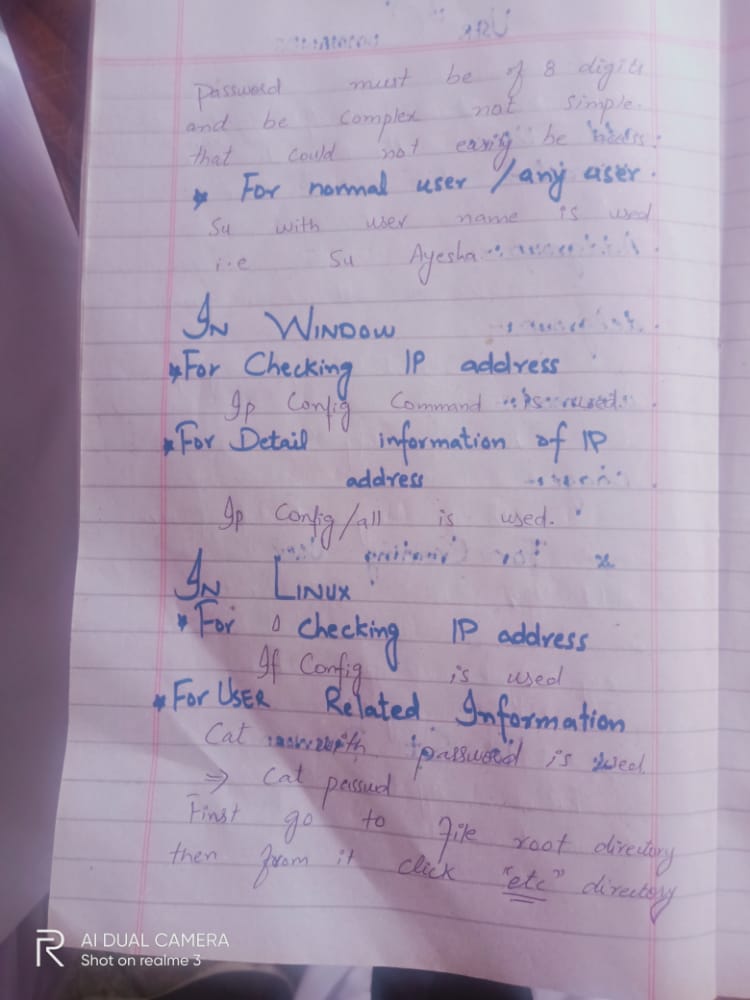 password must be of 8 digits
and be complex not simple.
that could not easily be
* For normal user / any user.
Su with user name is used
i.e Su Ayesha
IN WINDOW
* For Checking IP address
Ip Config Command is used.
* For Detail information of IP
address
Ip Config/all is used.
IN LINUX
* For checking IP address
If Config is used
* For USER Related Information
Cat with password is used.
⇒ Cat passwd
First go to file root directory
then from it click "etc" directory
AI DUAL CAMERA
Shot on realme 3